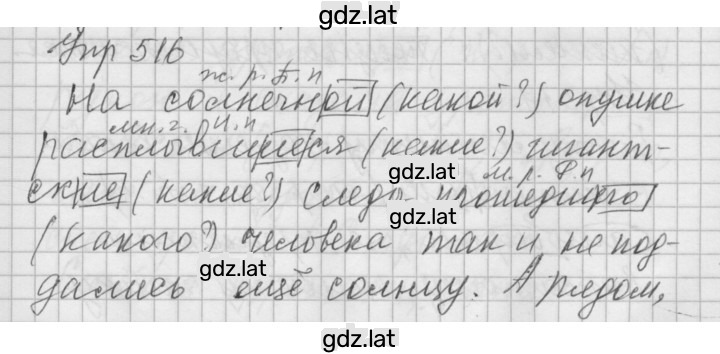 gdz.lat
Упр 516
ж. р. П. п
На солнечной (какой?) опушке
мн. ч. И. п
расплывшиеся (какие?) гигант-
gdz.lat
м. р. Р. п
ские (какие?) следы прошедшего
gdz.lat
(какого?) человека так и не под-
gdz.lat
дались ещё солнцу. А рядом,
gdz.lat